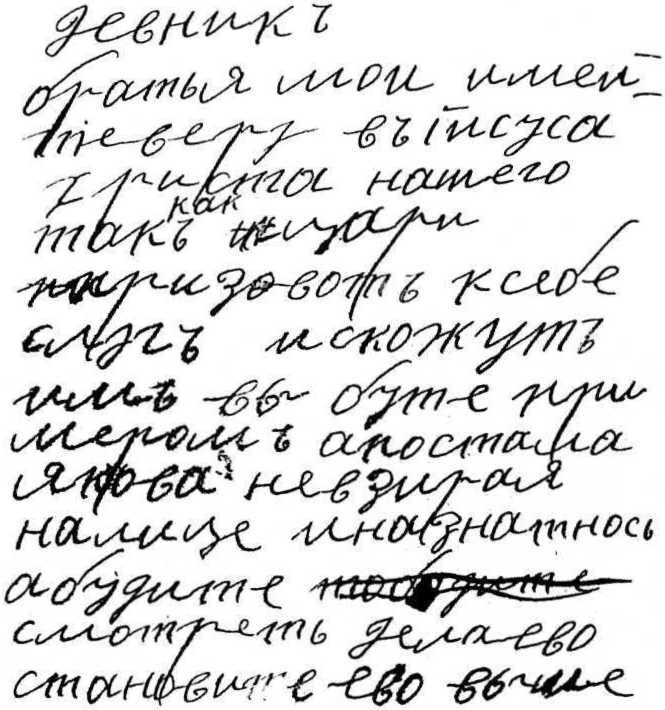 девникъ
братья мои имей=
теверу въ Іисуса
христа нашего
такъ как цари
призовотъ ксебе
слугъ искожутъ
имъ вы буте при
меромъ апостама
якова невзирая
налице иназнатнось
абудите тобудите
смотреть делаево
становите ево выше